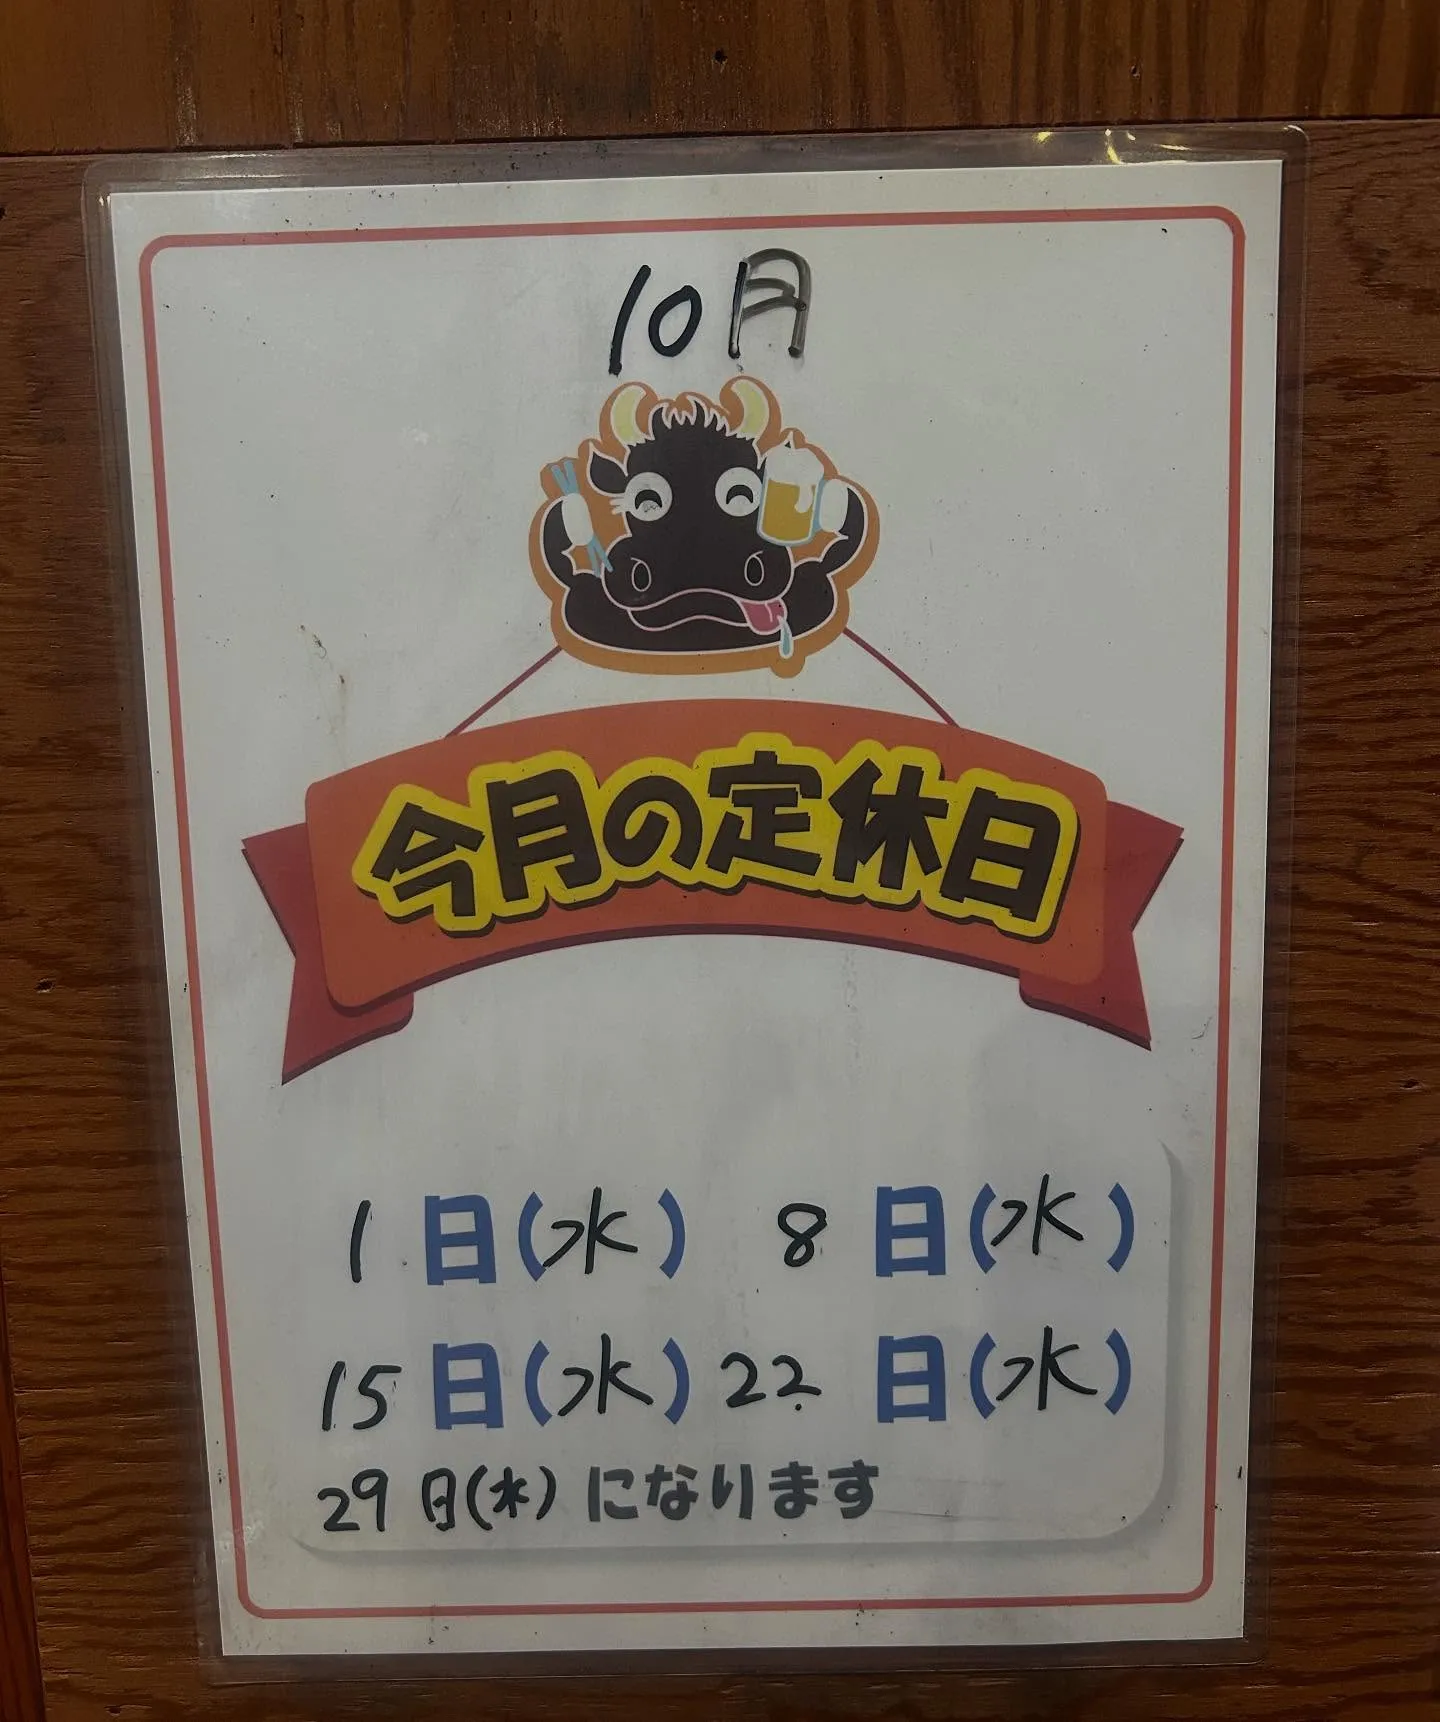 10月
今月の定休日
1日(水) 8日(水)
15日(水) 22日(水)
29日(水)になります